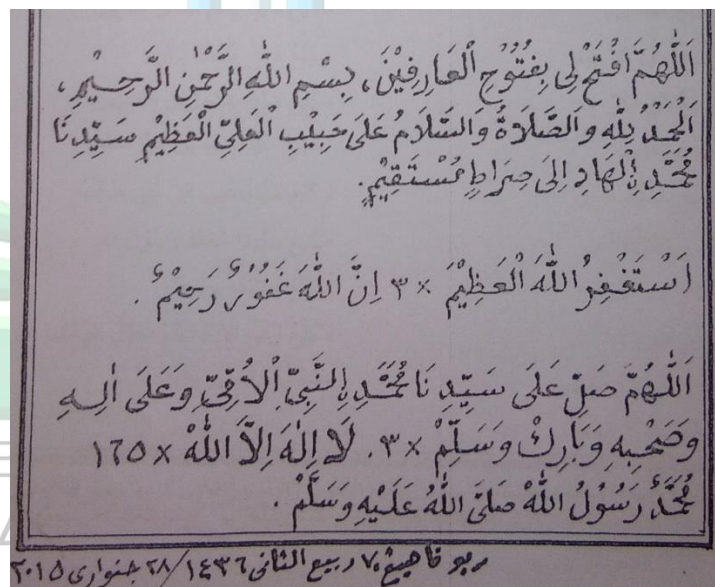 اَللّٰهُمَّ افْتَحْ لِى بِفُتُوْحِ الْعَارِفِيْنَ، بِسْمِ اللهِ الرَّحْمٰنِ الرَّحِيْمِ،
اَلْحَمْدُ لِلّٰهِ وَالصَّلَاةُ وَالسَّلَامُ عَلَى حَبِيْبِ الْعَلِيِّ الْعَظِيْمِ سَيِّدِنَا
مُحَمَّدِ نِالْهَادِ اِلَى صِرَاطٍ مُسْتَقِيْمٍ.
اَسْتَغْفِرُ اللهَ الْعَظِيْمَ ×٣ اِنَّ اللهَ غَفُوْرٌ رَحِيْمٌ.
اَللّٰهُمَّ صَلِّ عَلَى سَيِّدِنَا مُحَمَّدِ نِالنَّبِيِّ الْاُمِّيِّ وَعَلَى اٰلِهِ
وَصَحْبِهِ وَبَارِكْ وَسَلِّمْ ×٣. لَا اِلٰهَ اِلَّا اللهْ ×١٦٥
مُحَمَّدٌ رَسُوْلُ اللهْ صَلَّى اللهُ عَلَيْهِ وَسَلَّمْ.
ربو ڤاهيڠ، ٧ ربيع الثانى ١٤٣٦/ ٢٨ جنوارى ٢٠١٥